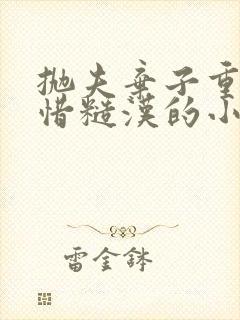 抛夫弃子重
惜糙漢的小
雷金鉢